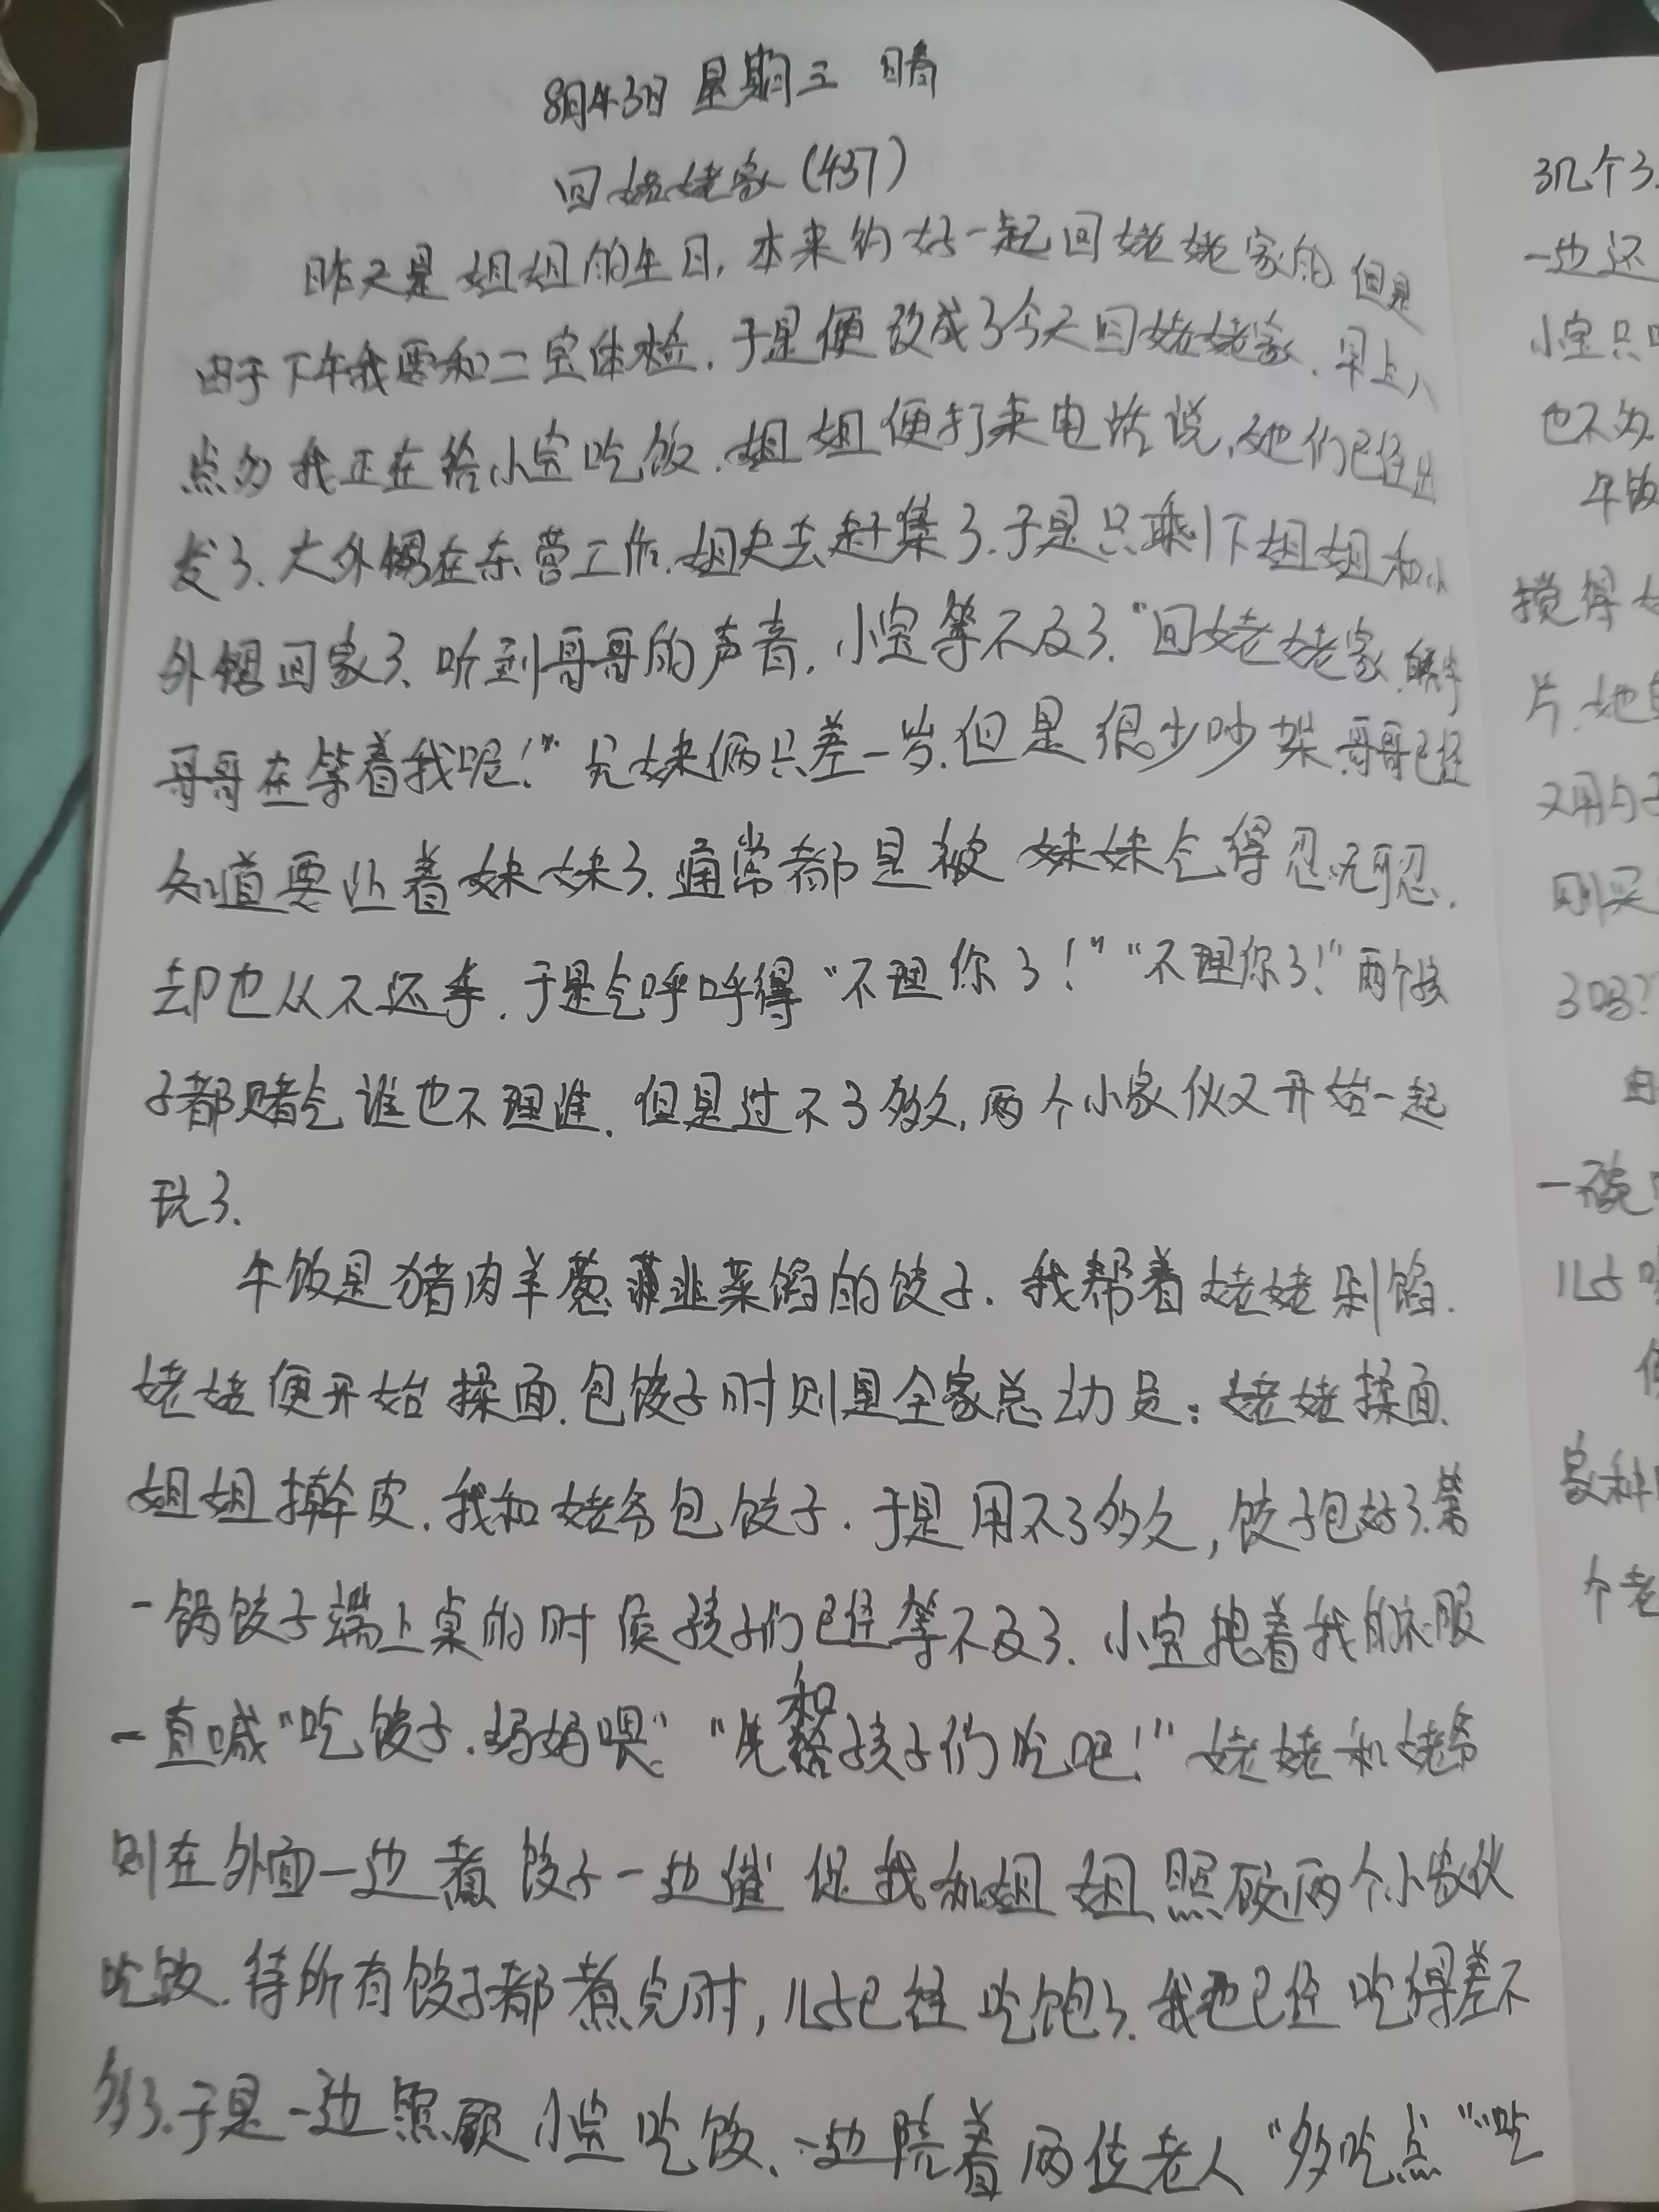 8月3日 星期三 晴
回姥姥家(437)
昨天是姐姐的生日,本来约好一起回姥姥家的.但是
由于下午我要和二宝体检.于是便改成了今天回姥姥家.早上八
点多我正在给小宝吃饭.姐姐便打来电话说,她们已经出
发了.大外甥在东营工作.姐夫去赶集了.于是只剩下姐姐和小
外甥回家了.听到哥哥的声音.小宝等不及了."回姥姥家.
哥哥在等着我呢!"兄妹俩只差一岁.但是很少吵架.哥哥已经
知道要让着妹妹了.通常都是被妹妹气得忍无可忍.
却也从不还手.于是气呼呼得"不理你了!""不理你了!"两个孩
子都赌气谁也不理谁.但是过不了多久,两个小家伙又开始一起
玩了.
午饭是猪肉羊葱韭菜馅的饺子.我帮着姥姥剁馅.
姥姥便开始揉面.包饺子时则是全家总动员:姥姥揉面.
姐姐擀皮.我和姥爷包饺子.于是用不了多久,饺子包好了.第
一锅饺子端上桌的时侯孩子们已经等不及了.小宝拽着我的衣服
一直喊"吃饺子.妈妈喂""先和孩子们吃吧!"姥姥和姥爷
则在外面一边煮饺子一边催促我和姐姐照顾两个小家伙
吃饭.待所有饺子都煮完时,儿子已经吃饱了.我也已经吃得差不
多了.于是一边照顾小宝吃饭.一边陪着两位老人"多吃点""吃
了几个了
一边还
小宝只
也不
午饭
搅得
片.她
又用勺子
刚买
了吗?
一碗
儿子
家种
个老